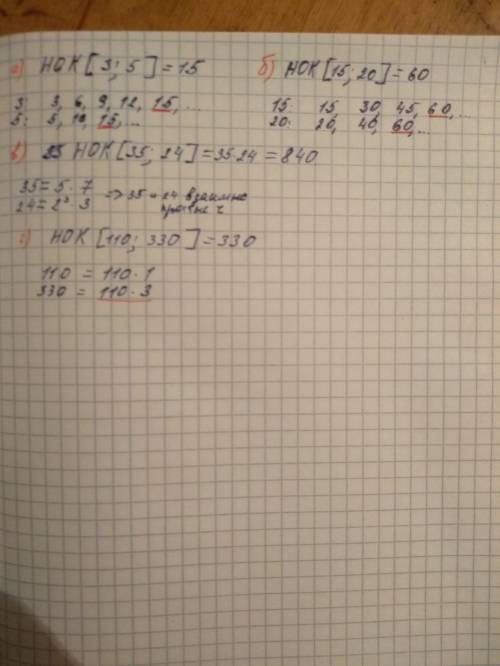 а) НОК[3; 5] = 15
3: 3, 6, 9, 12, 15, ...
5: 5, 10, 15, ...
б) НОК[15; 20] = 60
15: 15, 30, 45, 60, ...
20: 20, 40, 60, ...
в) НОК[35; 24] = 35·24 = 840
35 = 5 · 7
24 = 2³ · 3 => 35 и 24 взаимно
простые ч
с) НОК [110; 330] = 330
110 = 110 · 1
330 = 110 · 3